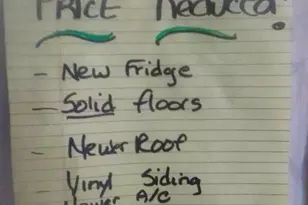 PRICE Reduced!
- New Fridge
- Solid floors
- Newer Roof
- Vinyl Siding
Newer A/C